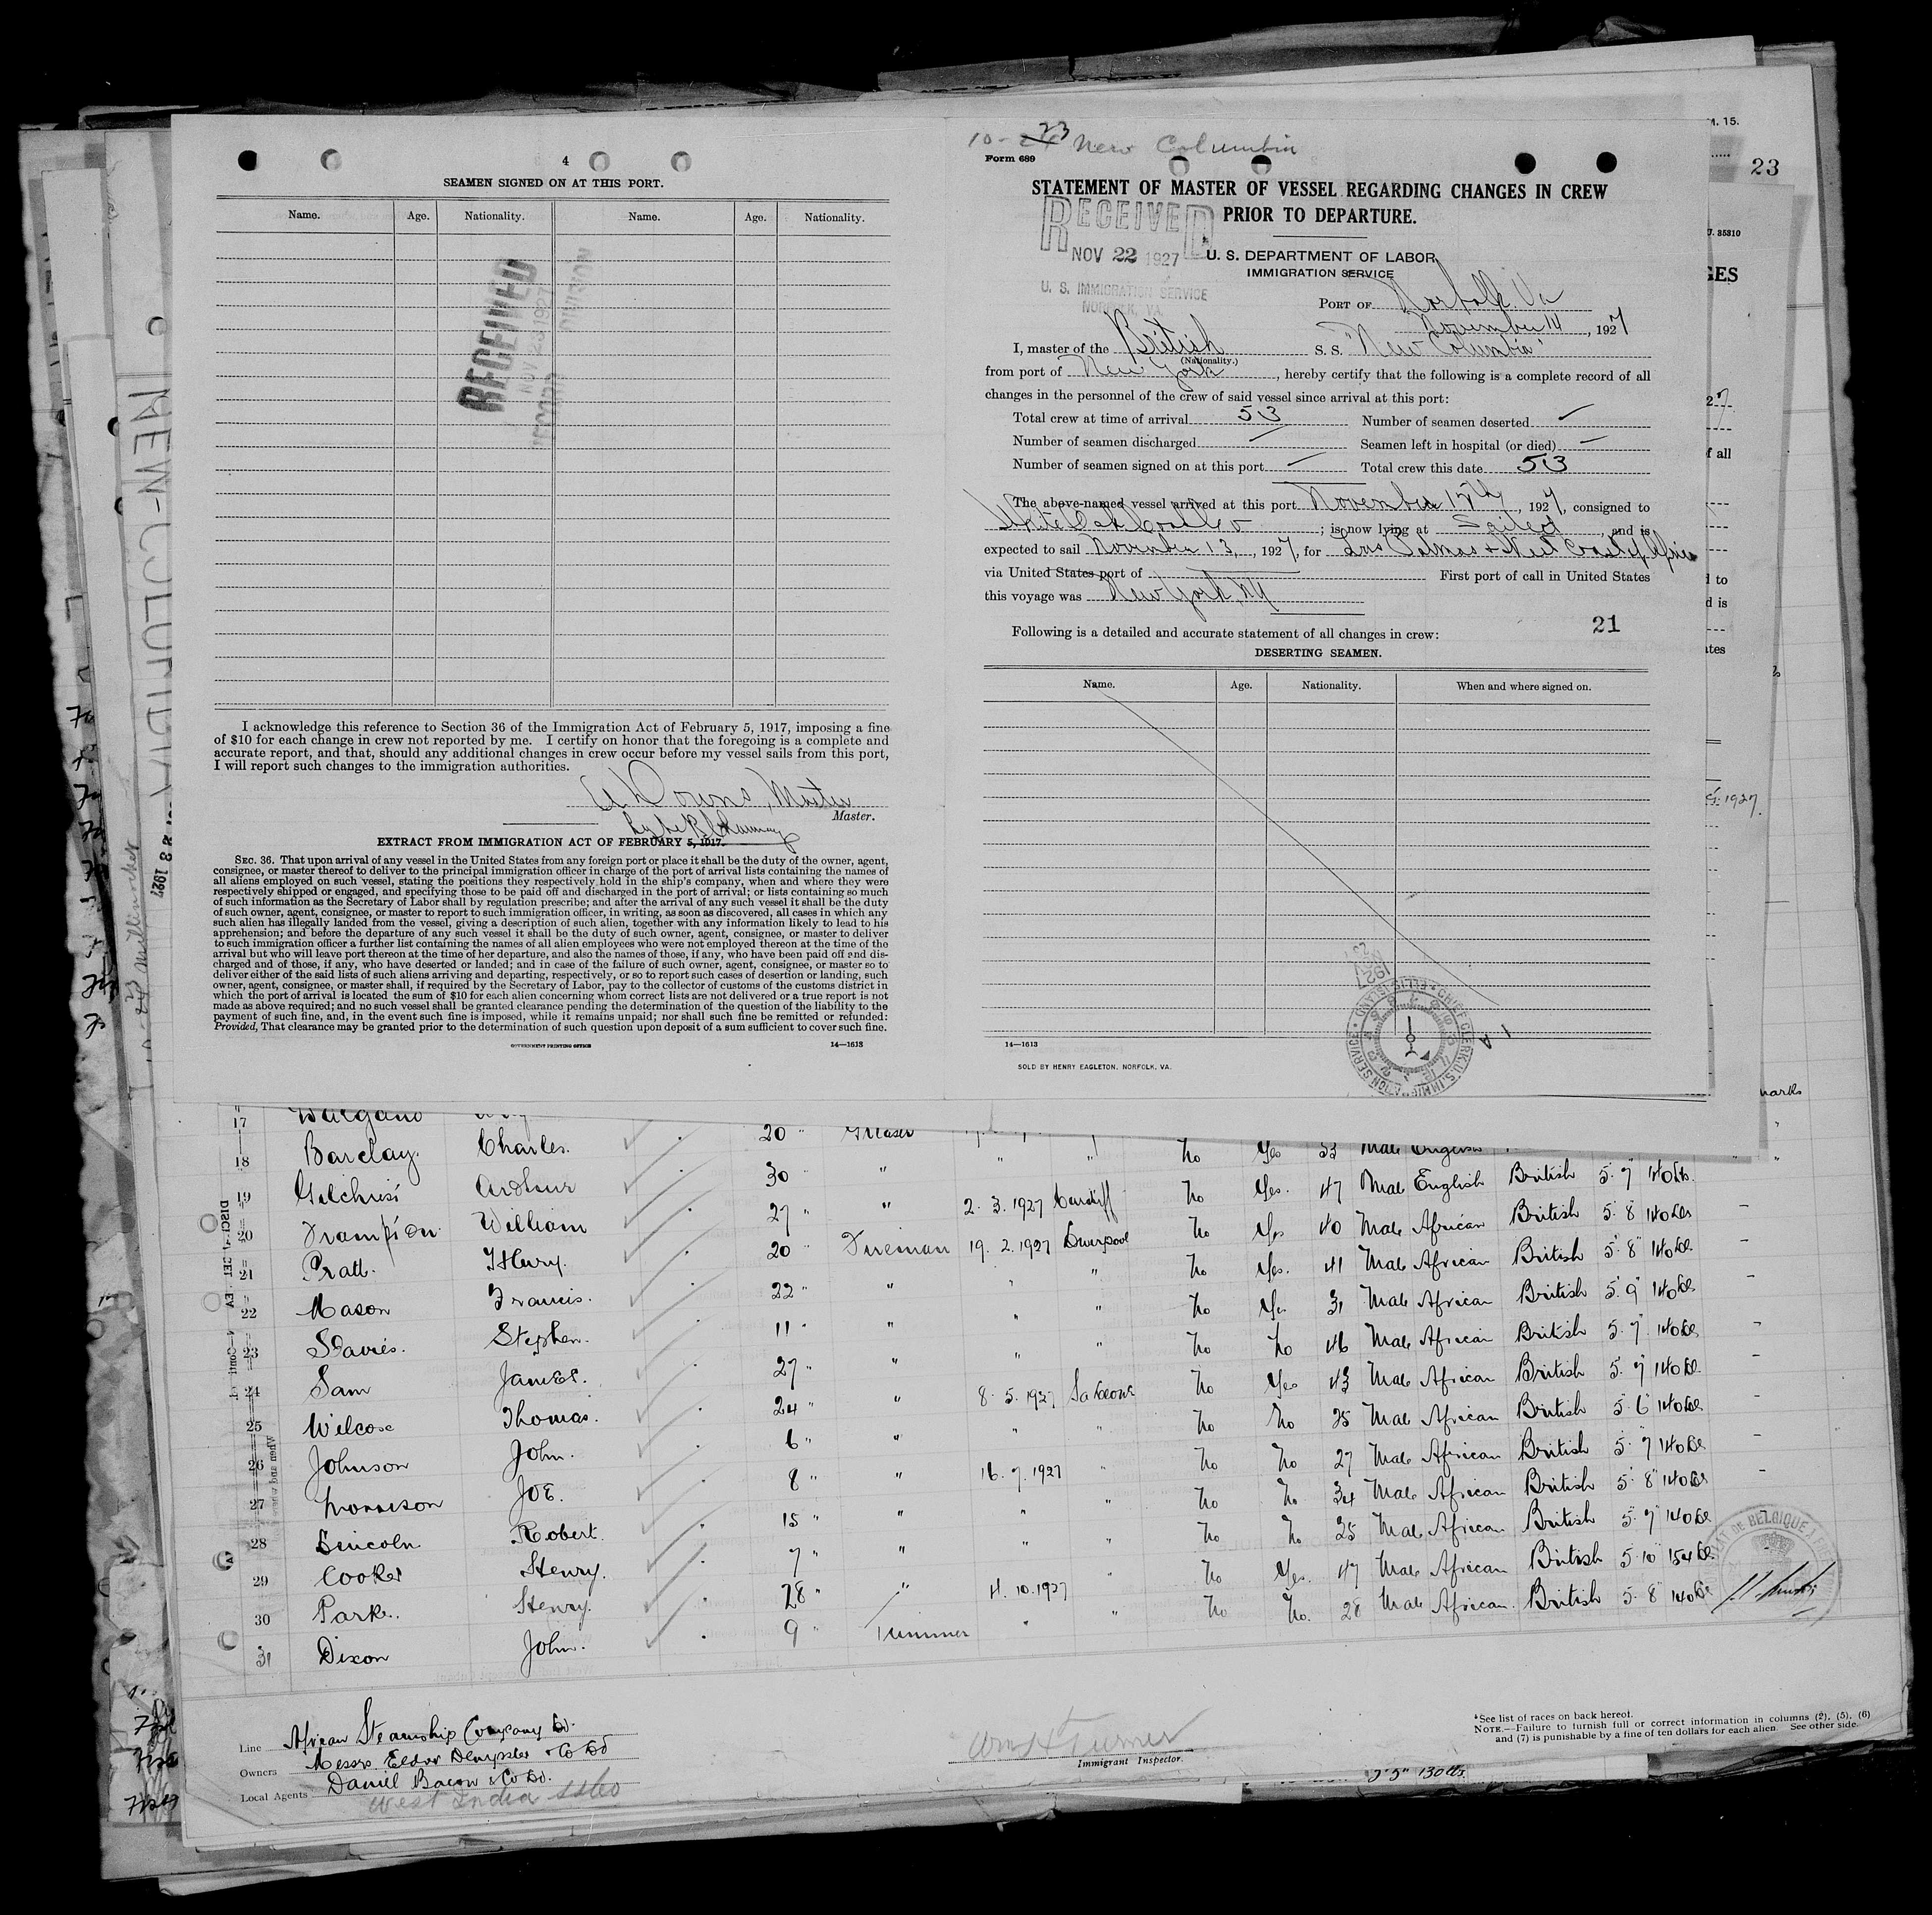 4
SEAMEN SIGNED ON AT THIS PORT.
Name. Age. Nationality. Name. Age. Nationality.
RECEIVED
NOV 23 1927
RECORD DIVISION
I acknowledge this reference to Section 36 of the Immigration Act of February 5, 1917, imposing a fine
of $10 for each change in crew not reported by me. I certify on honor that the foregoing is a complete and
accurate report, and that, should any additional changes in crew occur before my vessel sails from this port,
I will report such changes to the immigration authorities.
Downs, Master
Master.
EXTRACT FROM IMMIGRATION ACT OF FEBRUARY 5, 1917.
SEC. 36. That upon arrival of any vessel in the United States from any foreign port or place it shall be the duty of the owner, agent,
consignee, or master thereof to deliver to the principal immigration officer in charge of the port of arrival lists containing the names of
all aliens employed on such vessel, stating the positions they respectively hold in the ship's company, when and where they were
respectively shipped or engaged, and specifying those to be paid off and discharged in the port of arrival; or lists containing so much
of such information as the Secretary of Labor shall by regulation prescribe; and after the arrival of any such vessel it shall be the duty
of such owner, agent, consignee, or master to report to such immigration officer, in writing, as soon as discovered, all cases in which any
such alien has illegally landed from the vessel, giving a description of such alien, together with any information likely to lead to his
apprehension; and before the departure of any such vessel it shall be the duty of such owner, agent, consignee, or master to deliver
to such immigration officer a further list containing the names of all alien employees who were not employed thereon at the time of the
arrival but who will leave port thereon at the time of her departure, and also the names of those, if any, who have been paid off and dis-
charged and of those, if any, who have deserted or landed; and in case of the failure of such owner, agent, consignee, or master so to
deliver either of the said lists of such aliens arriving and departing, respectively, or so to report such cases of desertion or landing, such
owner, agent, consignee, or master shall, if required by the Secretary of Labor, pay to the collector of customs of the customs district in
which the port of arrival is located the sum of $10 for each alien concerning whom correct lists are not delivered or a true report is not
made as above required; and no such vessel shall be granted clearance pending the determination of the question of the liability to the
payment of such fine, and, in the event such fine is imposed, while it remains unpaid; nor shall such fine be remitted or refunded:
Provided, That clearance may be granted prior to the determination of such question upon deposit of a sum sufficient to cover such fine.
GOVERNMENT PRINTING OFFICE 14—1613
10-23 New Columbia
Form 689
STATEMENT OF MASTER OF VESSEL REGARDING CHANGES IN CREW
PRIOR TO DEPARTURE.
RECEIVED
NOV 22 1927
U. S. IMMIGRATION SERVICE
NORFOLK, VA.
U. S. DEPARTMENT OF LABOR
IMMIGRATION SERVICE
PORT OF Norfolk Va
November 14, 1927
I, master of the British S. S. "New Columbia"
(Nationality.)
from port of New York, hereby certify that the following is a complete record of all
changes in the personnel of the crew of said vessel since arrival at this port:
Total crew at time of arrival 53 Number of seamen deserted
Number of seamen discharged Seamen left in hospital (or died)
Number of seamen signed on at this port Total crew this date 53
The above-named vessel arrived at this port November 12th, 1927, consigned to
White Oak Coal Co; is now lying at Sailed and is
expected to sail November 13, 1927, for Las Palmas & West Coast of Africa
via United States port of First port of call in United States
this voyage was New York, NY
Following is a detailed and accurate statement of all changes in crew: 21
DESERTING SEAMEN.
Name. Age. Nationality. When and where signed on.
CHIEF CLERK U.S. IMMIGRATION SERVICE ELLIS ISLAND
1927
14—1613
SOLD BY HENRY EAGLETON, NORFOLK, VA.
M. 15.
23
GES
f all
d to
d is
tes
1927.
marks
NEW-COLUMBIA
1927
17 Dalgano 20 " Greaser
18 Barclay. Charles. 30 " " " " No Yes 53 Male English
19 Gilchrist Arthur 27 " " 2. 3. 1927 Cardiff No Yes. 47 Male English British 5. 7 140 lbs
20 Frampton William 20 " Fireman 19. 2. 1927 Liverpool No Yes 40 Male African British 5. 8 140 lbs —
21 Pratt. Henry. 22 " " " " No Yes. 41 Male African British 5. 8" 140 lbs —
22 Mason Francis. 11 " " " " No Yes 31 Male African British 5. 9" 140 lbs —
23 Davies. Stephen. 27 " " " " No No 46 Male African British 5. 7" 140 lbs —
24 Sam James. 24 " " 8. 5. 1927 No Yes 43 Male African British 5. 7" 140 lbs —
25 Wilcox Thomas. 6 " " " " No No 25 Male African British 5. 6" 140 lbs —
26 Johnson John. 8 " " 16. 7. 1927 " No No 27 Male African British 5. 7 140 lbs —
27 Morrison Joe. 15 " " " " No No 34 Male African British 5. 8" 140 lbs —
28 Lincoln Robert. 7 " " " " No No 25 Male African British 5. 7" 140 lbs
29 Cooker Henry. 28 " " 4. 10. 1927 " No Yes. 47 Male African British 5. 10 154 lbs —
30 Park. Henry. 9 " Trimmer " " No No. 28 Male African. British 5. 8 140 lbs
31 Dixon John.
DE BELGIQUE
Line African Steamship Company Ld.
Owners Messrs. Elder Dempster & Co Ld
Local Agents Daniel Bacon & Co Ld.
West India SS Co
Wm H Turner
Immigrant Inspector.
*See list of races on back hereof.
NOTE.—Failure to furnish full or correct information in columns (2), (5), (6)
and (7) is punishable by a fine of ten dollars for each alien. See other side.
5"5" 130 lbs